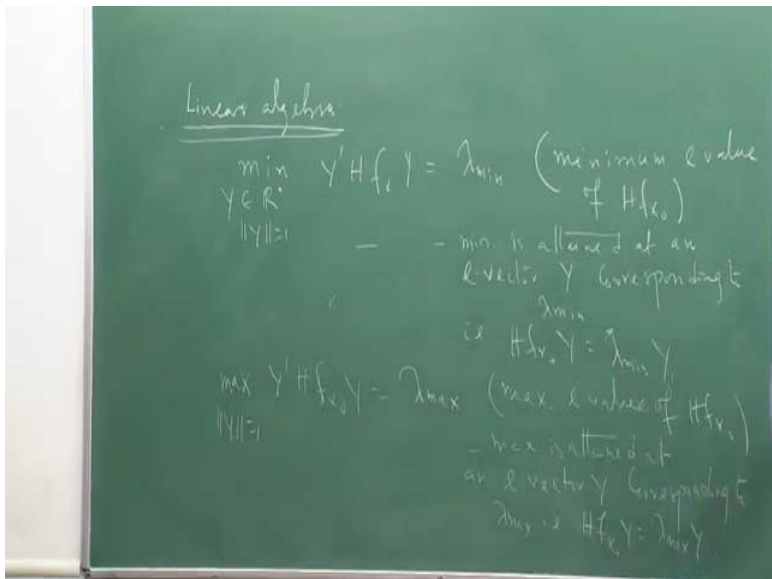 Linear algebra.
min Y' H f_x Y = λ_min (minimum e value
Y ∈ R^n of H f_x₀)
||Y||=1 — - min. is attained at an
e-vector Y corresponding to
λ_min
ie H f_x₀ Y = λ_min Y
max Y' H f_x₀ Y = λ_max (max. e value of H f_x₀)
||Y||=1
- max is attained at
an e vector Y corresponding to
λ_max ie H f_x₀ Y = λ_max Y